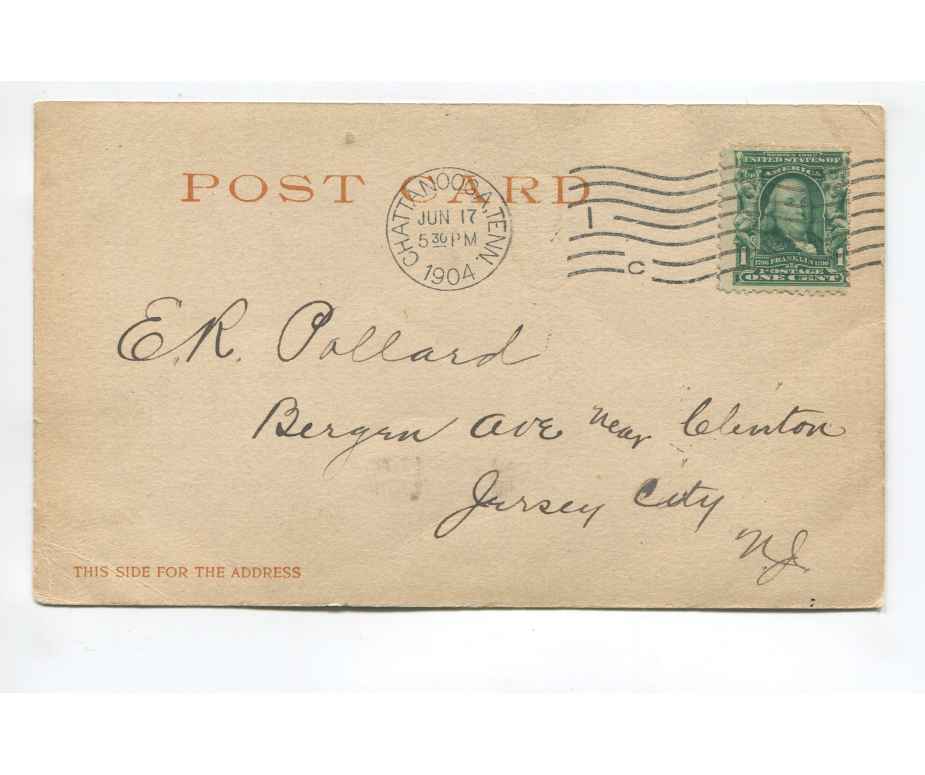 POST CARD
CHATTANOOGA, TENN.
JUN 17
5 30 PM
1904
1
C
SERIES 1902
UNITED STATES OF
AMERICA
1706 FRANKLIN 1790
POSTAGE
1 ONE CENT 1
E.R. Pollard
Bergen Ave near Clinton
Jersey City
N.J.
THIS SIDE FOR THE ADDRESS